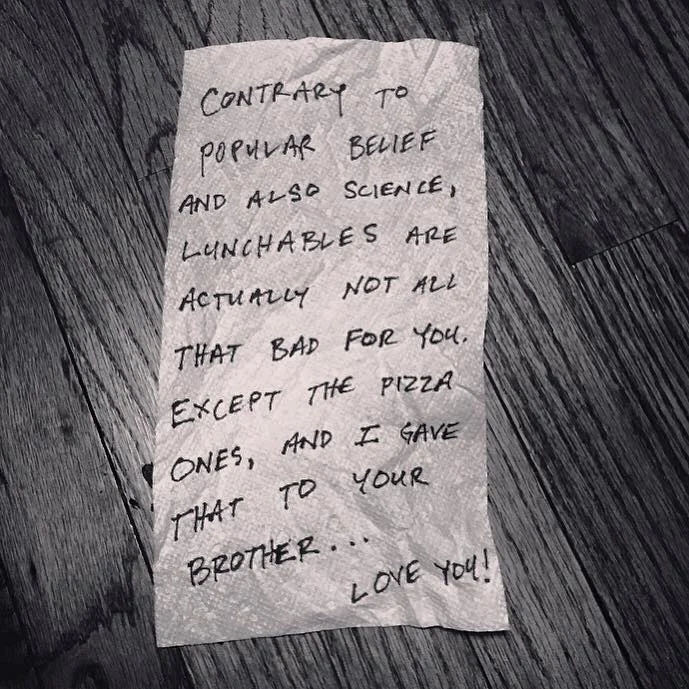 CONTRARY TO
POPULAR BELIEF
AND ALSO SCIENCE,
LUNCHABLES ARE
ACTUALLY NOT ALL
THAT BAD FOR YOU.
EXCEPT THE PIZZA
ONES, AND I GAVE
THAT TO YOUR
BROTHER...
LOVE YOU!